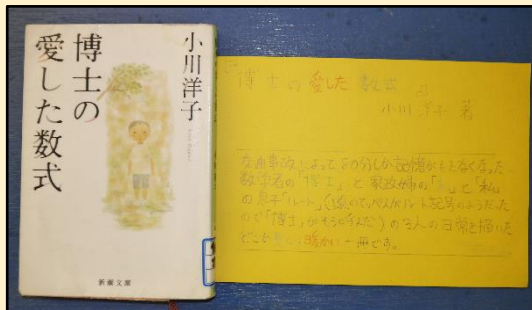 小川洋子
博士の
愛した数式
新潮文庫
博士の愛した数式
小川洋子 著
交通事故によって80分しか記憶がもてなくなった
数学者の「博士」と家政婦の「私」と「私」
の息子「ルート」(頭のてっぺんがルート記号のようだった
ので「博士」がそう呼んだ)の3人の日常を描いた
どこか悲しく、暖かい一冊です。